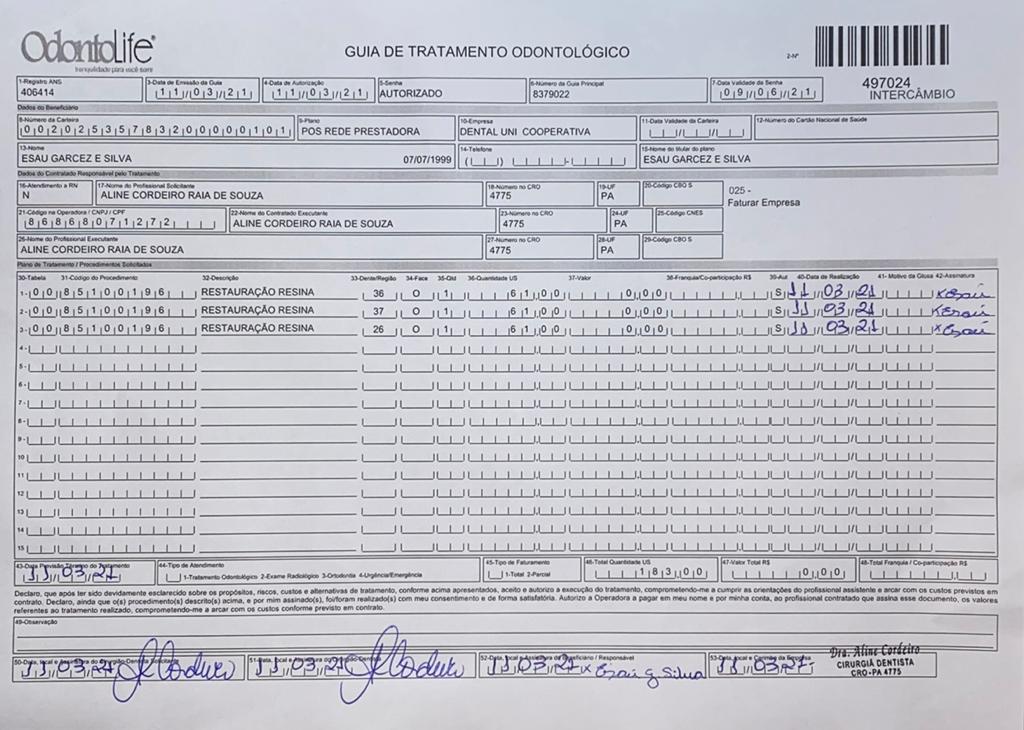 OdontoLife®
tranquilidade para você sorrir
GUIA DE TRATAMENTO ODONTOLÓGICO
2-Nº
497024
INTERCÂMBIO
1-Registro ANS 3-Data de Emissão da Guia 4-Data de Autorização 5-Senha 6-Número da Guia Principal 7-Data Validade da Senha
406414 11/03/21 11/03/21 AUTORIZADO 8379022 09/06/21
Dados do Beneficiário
8-Número da Carteira 9-Plano 10-Empresa 11-Data Validade da Carteira 12-Número do Cartão Nacional de Saúde
00202535783200000101 POS REDE PRESTADORA DENTAL UNI COOPERATIVA
13-Nome 14-Telefone 15-Nome do titular do plano
ESAU GARCEZ E SILVA 07/07/1999 ESAU GARCEZ E SILVA
Dados do Contratado Responsável pelo Tratamento
16-Atendimento a RN 17-Nome do Profissional Solicitante 18-Número no CRO 19-UF 20-Código CBO S
N ALINE CORDEIRO RAIA DE SOUZA 4775 PA
025 -
Faturar Empresa
21-Código na Operadora / CNPJ / CPF 22-Nome do Contratado Executante 23-Número no CRO 24-UF 25-Código CNES
86868071272 ALINE CORDEIRO RAIA DE SOUZA 4775 PA
26-Nome do Profissional Executante 27-Número no CRO 28-UF 29-Código CBO S
ALINE CORDEIRO RAIA DE SOUZA 4775 PA
Plano de Tratamento / Procedimentos Solicitados
30-Tabela 31-Código do Procedimento 32-Descrição 33-Dente/Região 34-Face 35-Qtd 36-Quantidade US 37-Valor 38-Franquia/Co-participação R$ 39-Aut 40-Data de Realização 41- Motivo da Glosa 42-Assinatura
1- 00 85100196 RESTAURAÇÃO RESINA 36 O 1 61,00 0,00 S 11/03/21 x Esaú
2- 00 85100196 RESTAURAÇÃO RESINA 37 O 1 61,00 0,00 S 11/03/21 x Esaú
3- 00 85100196 RESTAURAÇÃO RESINA 26 O 1 61,00 0,00 S 11/03/21 x Esaú
4-
5-
6-
7-
8-
9-
10
11
12
13
14
15
43-Data Previsão Término do Tratamento 44-Tipo de Atendimento 45-Tipo de Faturamento 46-Total Quantidade US 47-Valor Total R$ 48-Total Franquia / Co-participação R$
11/03/21 1-Tratamento Odontológico 2-Exame Radiológico 3-Ortodontia 4-Urgência/Emergência 1-Total 2-Parcial 183,00 0,00
Declaro, que após ter sido devidamente esclarecido sobre os propósitos, riscos, custos e alternativas de tratamento, conforme acima apresentados, aceito e autorizo a execução do tratamento, comprometendo-me a cumprir as orientações do profissional assistente e arcar com os custos previstos em
contrato. Declaro, ainda que o(s) procedimento(s) descrito(s) acima, e por mim assinado(s), foi/foram realizado(s) com meu consentimento e de forma satisfatória. Autorizo a Operadora a pagar em meu nome e por minha conta, ao profissional contratado que assina esse documento, os valores
referentes ao tratamento realizado, comprometendo-me a arcar com os custos conforme previsto em contrato.
49-Observação
50-Data, local e Assinatura do Cirurgião-Dentista Solicitante 52-Data, local e Assinatura do Beneficiário / Responsável 53-Data, local e Carimbo da Empresa
11/03/21 11/03/21 11/03/21 x Esaú G Silva 11/03/21
Dra. Aline Cordeiro
CIRURGIÃ DENTISTA
CRO-PA 4775